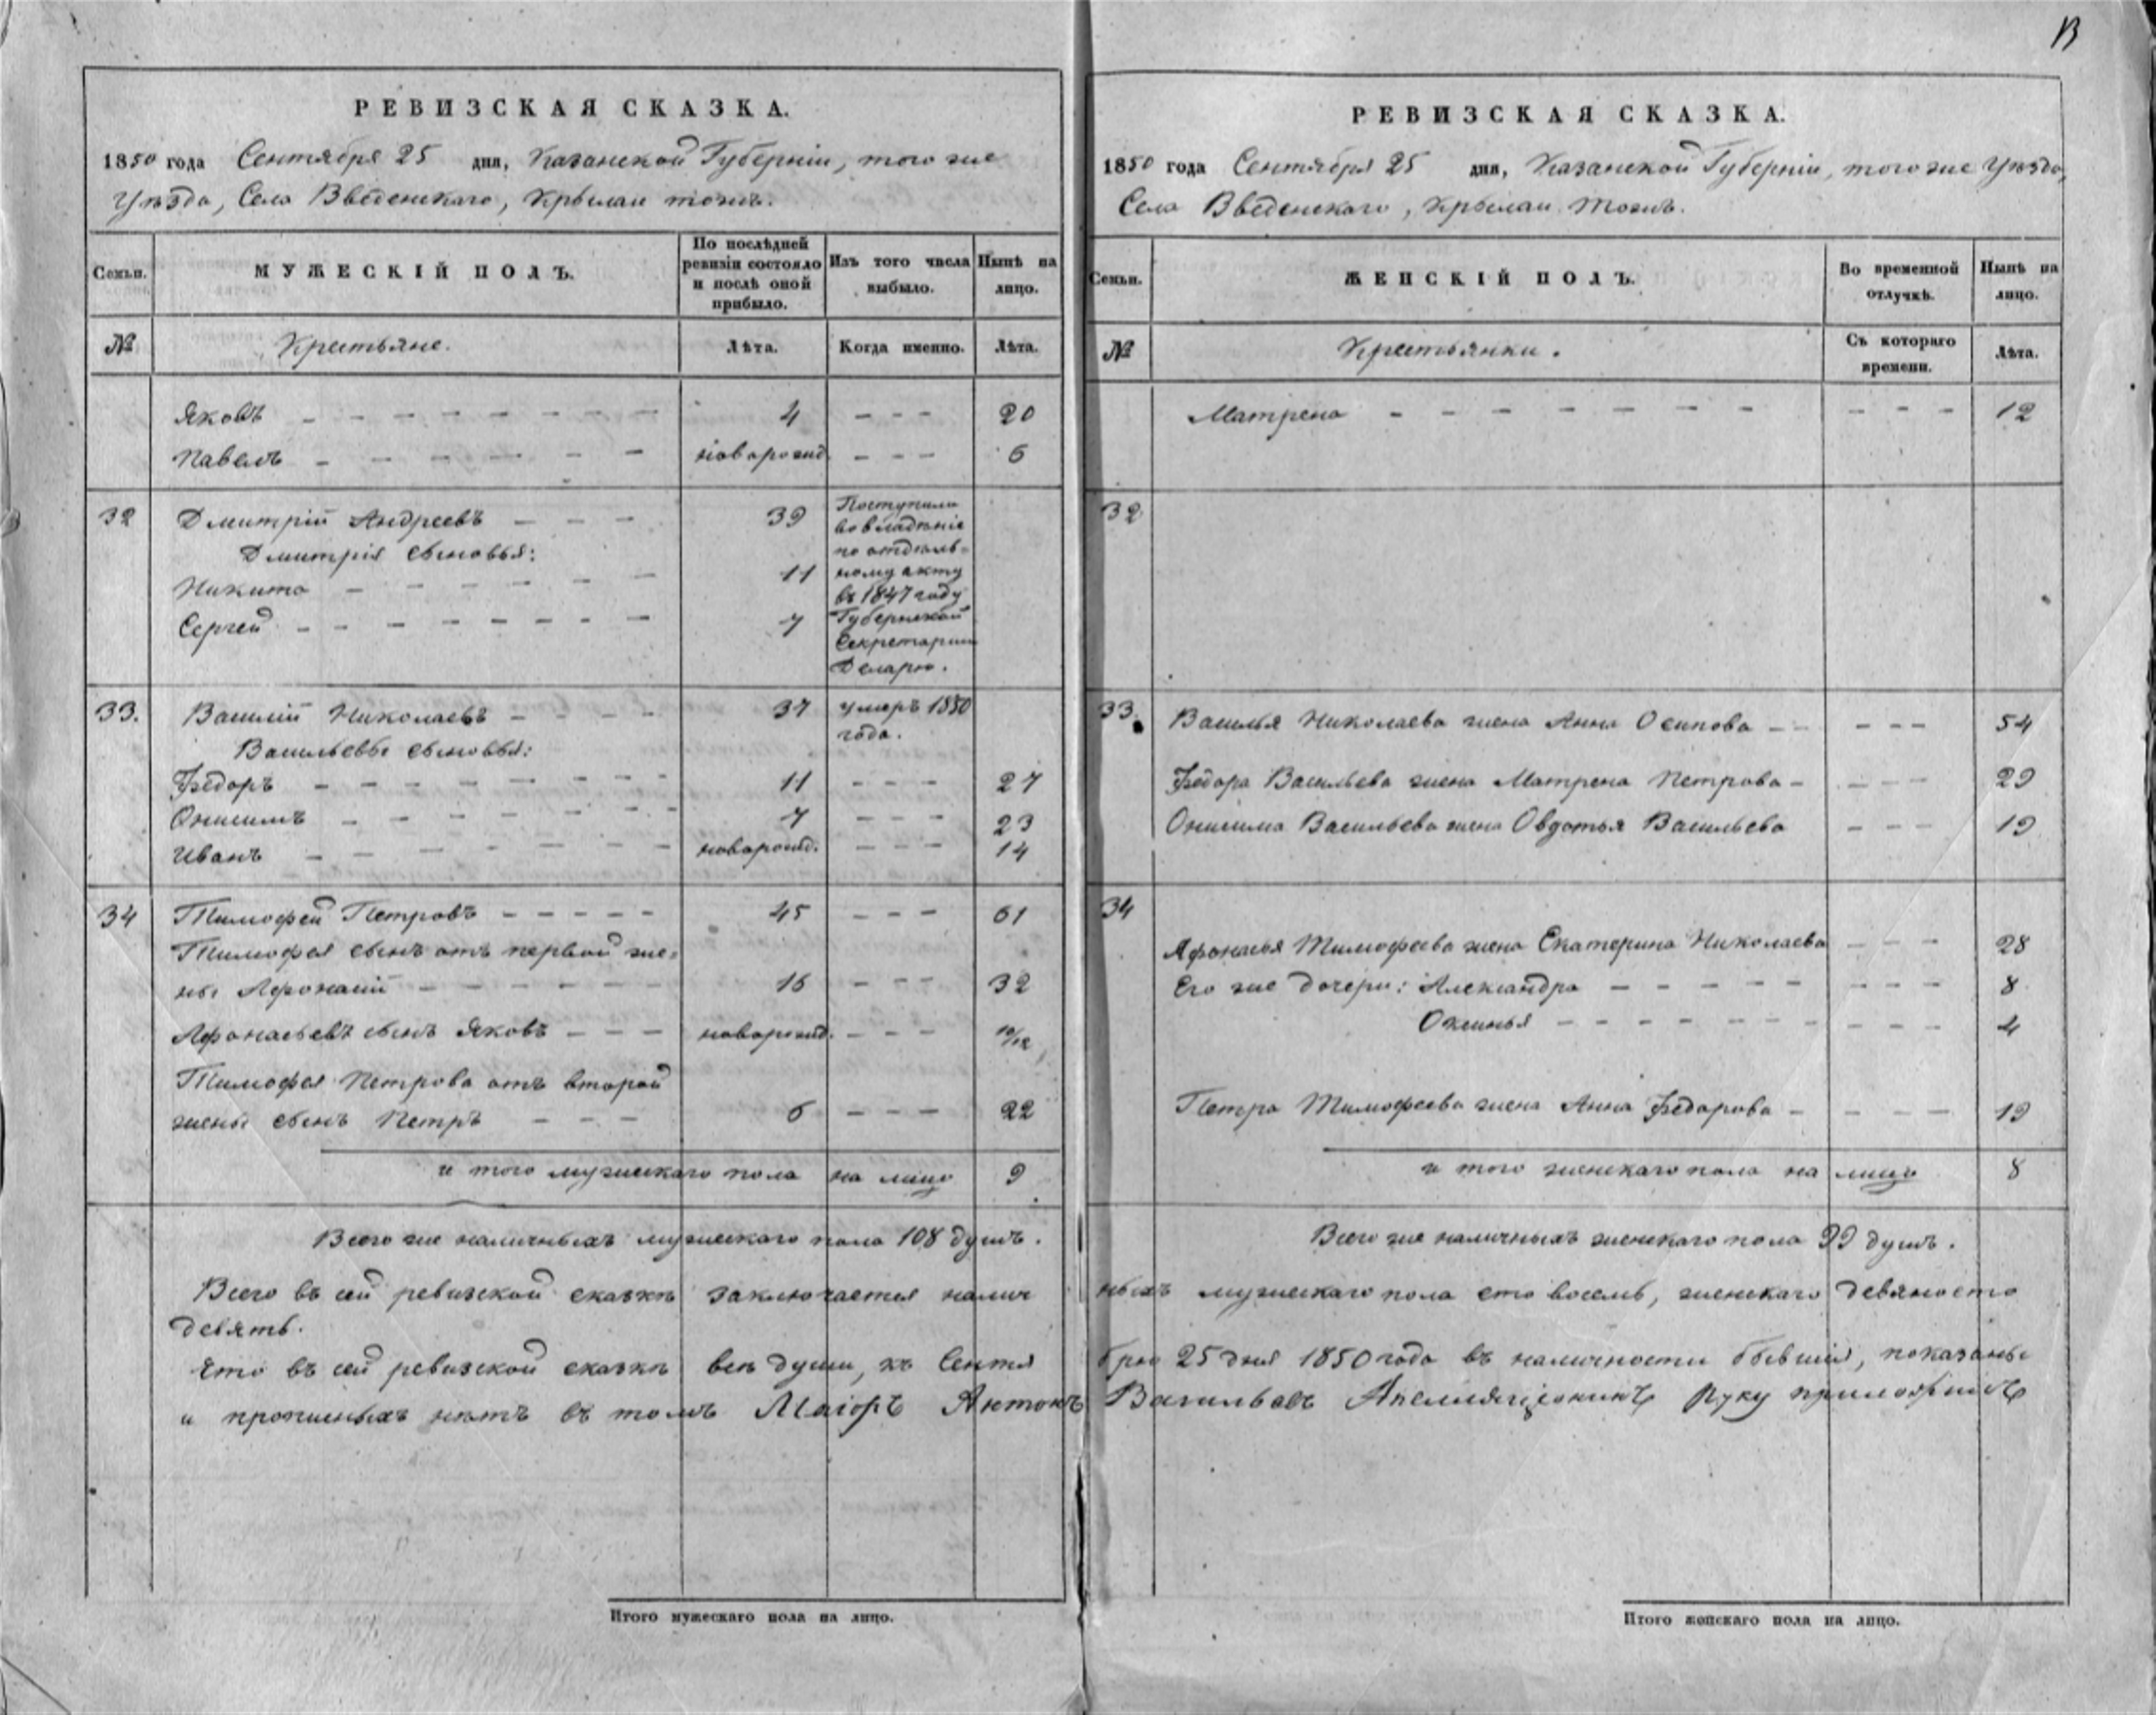 РЕВИЗСКАЯ СКАЗКА.
1850 года Сентября 25 дня, Казанской Губерніи, того же
Уѣзда, Села Введенскаго, Крылаи тожъ.
Семьи.
МУЖЕСКІЙ ПОЛЪ.
По послѣдней ревизіи состояло и послѣ оной прибыло.
Изъ того числа выбыло.
Нынѣ на лицо.
№
Крестьяне.
Лѣта.
Когда именно.
Лѣта.
Яковъ - - - - - - - 4 - - - 20
Павелъ - - - - - - новорожд. - - - 6
32 Дмитрій Андреевъ - - - 39
Дмитрія сыновья:
Никита - - - - - - 11
Сергей - - - - - - - - 7
Поступили
во владѣніе
по отдѣль-
ному акту
въ 1847 году
Губернской
Секретарши
Деларю.
33. Василій Николаевъ - - - - 37 умеръ 1850
года.
Васильевы сыновья:
Ѳедоръ - - - - - - - - 11 - - - 27
Онисимъ - - - - - - - 7 - - - 23
Иванъ - - - - - - - новорожд. - - - 14
34 Тимофей Петровъ - - - - - 45 - - - 61
Тимофея сынъ отъ первой же=
ны Афонасій - - - - - - 16 - - - 32
Афонасьевъ сынъ Яковъ - - - новорожд. - - - 10/12
Тимофея Петрова отъ второй
жены сынъ Петръ - - - 6 - - - 22
и того мужескаго пола на лицо 9
Всего же наличныхъ мужескаго пола 108 душъ.
Всего въ сей ревизской сказкѣ заключается налич
девять.
Что въ сей ревизской сказкѣ всѣ души, къ Сентя
и прописныхъ нѣтъ въ томъ Маіоръ Антонъ
Итого мужескаго пола на лицо.
РЕВИЗСКАЯ СКАЗКА.
1850 года Сентября 25 дня, Казанской Губерніи, того же Уѣзда,
Села Введенскаго, Крылаи тожъ.
Семьи.
ЖЕНСКІЙ ПОЛЪ.
Во временной отлучкѣ.
Нынѣ на лицо.
№
Крестьянки.
Съ котораго времени.
Лѣта.
Матрена - - - - - - - - - - 12
32
33. Василья Николаева жена Анна Осипова - - - - - 54
Ѳедора Васильева жена Матрена Петрова - - - - 29
Онисима Васильева жена Овдотья Васильева - - - 19
34
Афонасья Тимофеева жена Екатерина Николаева - - - 28
Его же дочери: Александра - - - - - - - - 8
Оксинья - - - - - - - - - - 4
Петра Тимофеева жена Анна Ѳедорова - - - - 19
и того женскаго пола на лицо 8
Всего же наличныхъ женскаго пола 99 душъ.
ныхъ мужескаго пола сто восемь, женскаго девяносто
брю 25 дня 1850 года въ наличности бывшія, показаны
Васильевъ Руку приложилъ
Итого женскаго пола на лицо.